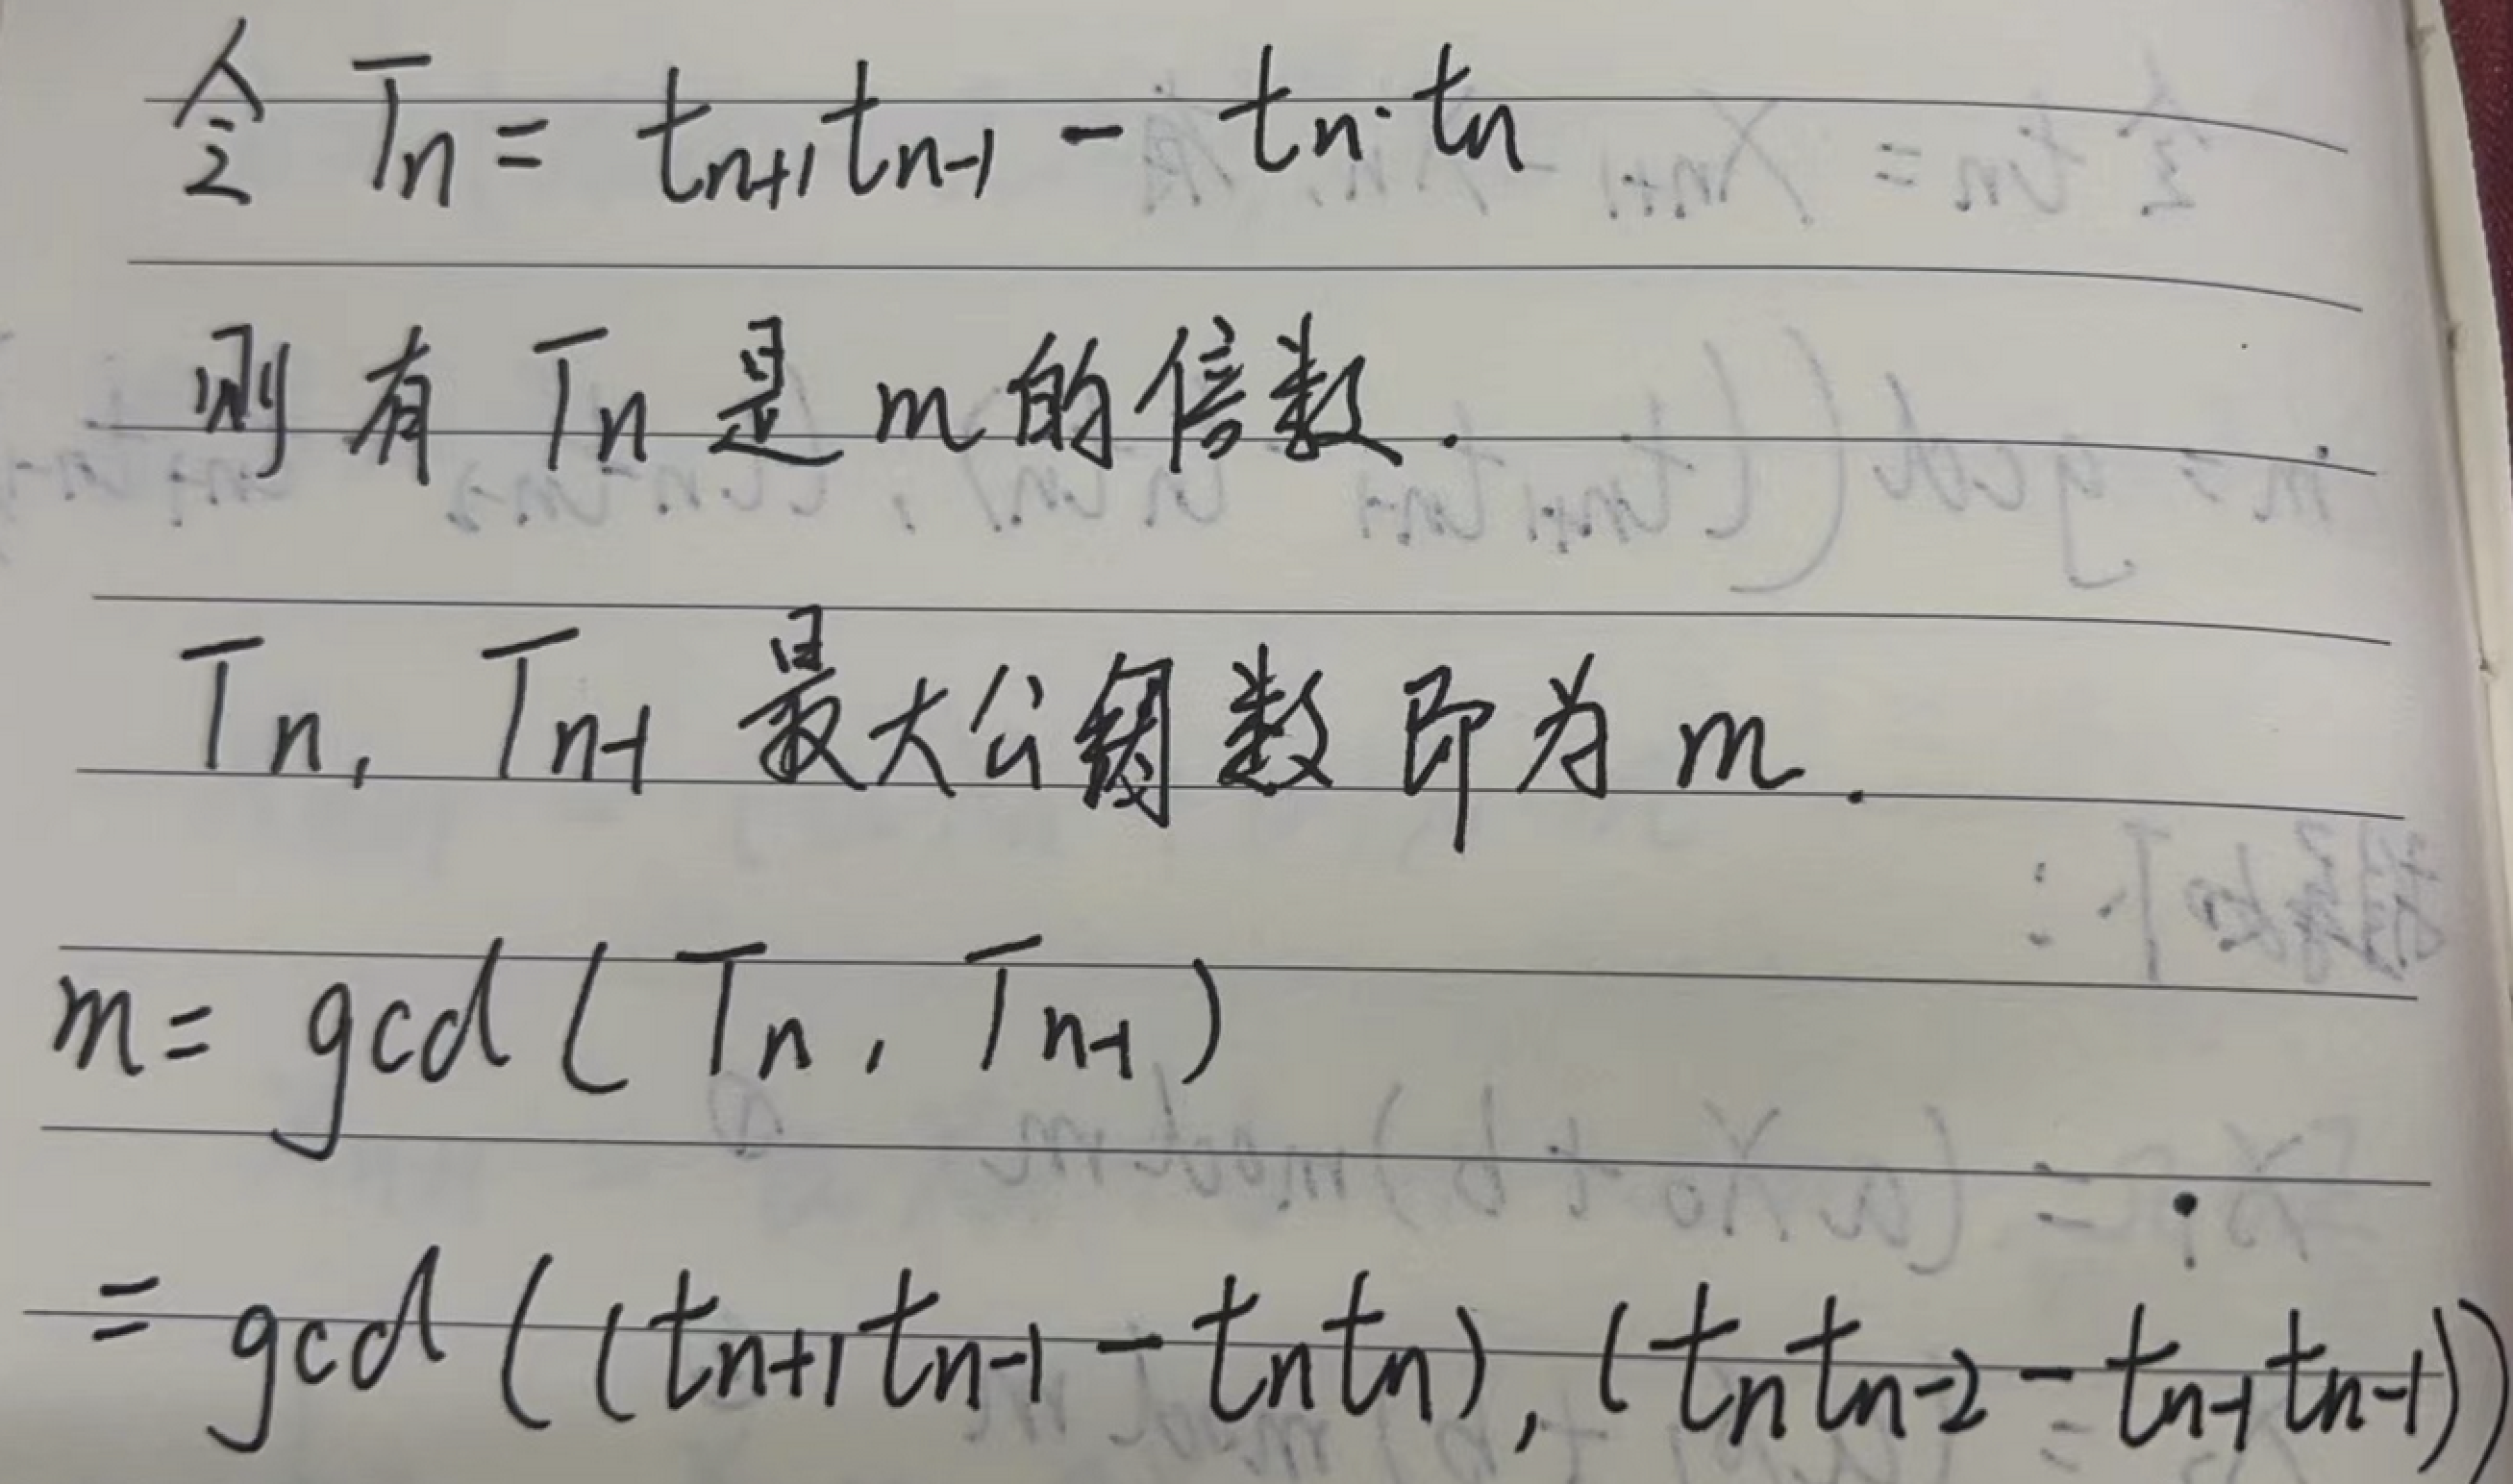 令 Tn = tn+1 tn-1 - tn·tn
则有 Tn 是 m 的倍数.
Tn, Tn-1 最大公约数即为 m.
m = gcd(Tn, Tn-1)
= gcd((tn+1 tn-1 - tn tn), (tn tn-2 - tn-1 tn-1))